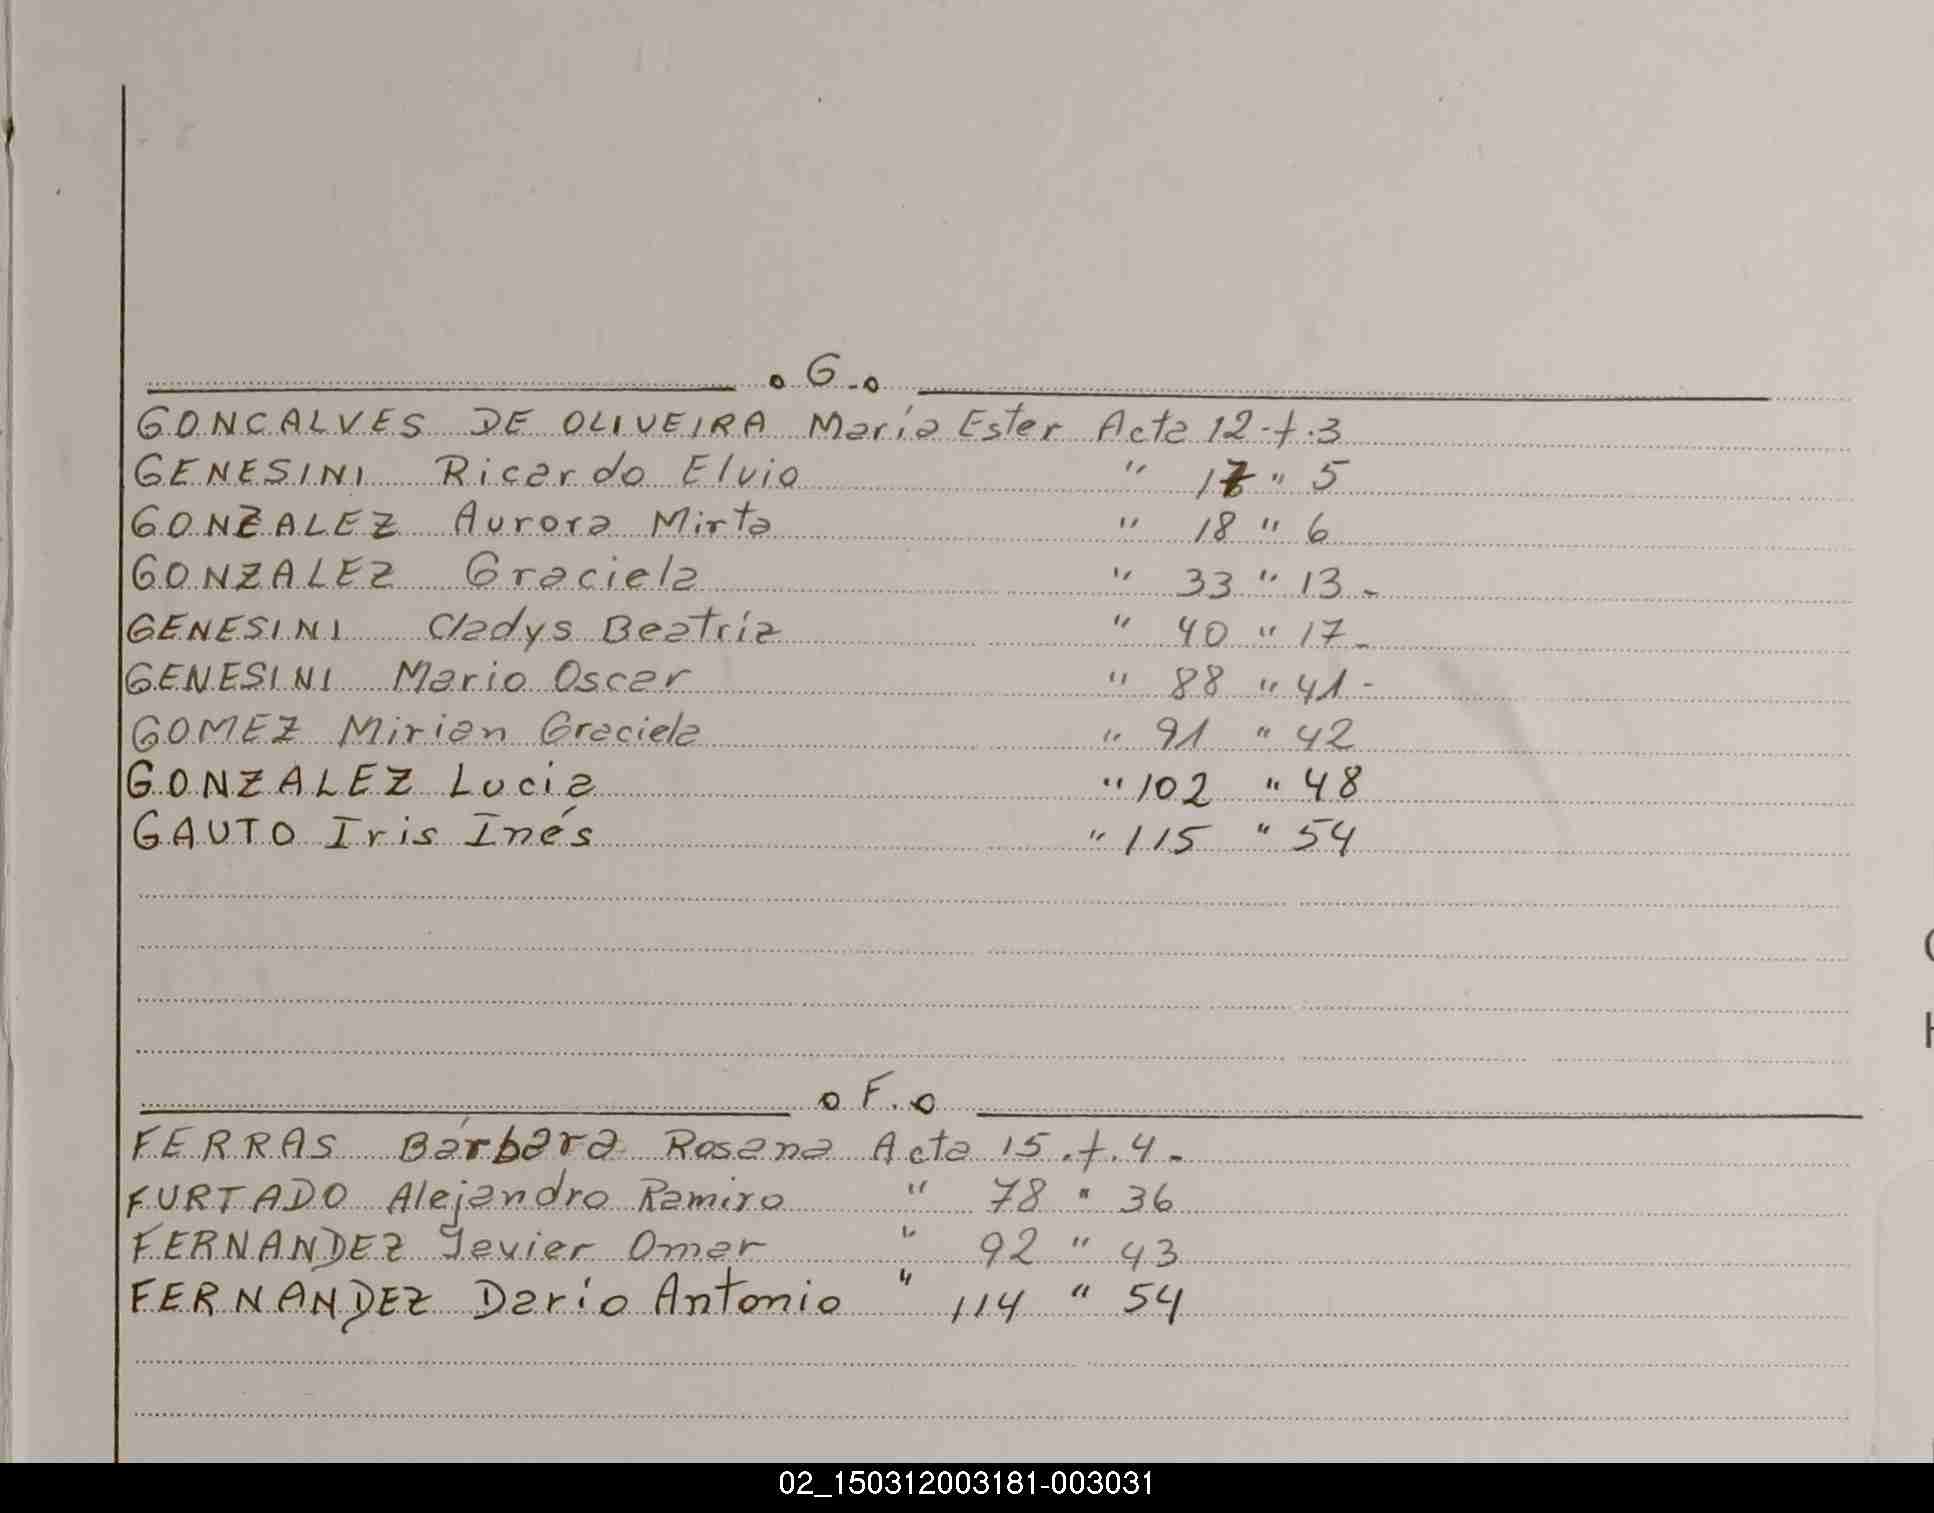 . G. .
GONCALVES DE OLIVEIRA María Ester Acta 12 . f . 3
GENESINI Ricardo Elvio " 17 " 5
GONZALEZ Aurora Mirta " 18 " 6
GONZALEZ Graciela " 33 " 13 -
GENESINI Gladys Beatríz " 40 " 17 -
GENESINI Mario Oscar " 88 " 41 -
GOMEZ Mirian Graciela " 91 " 42
GONZALEZ Lucia " 102 " 48
GAUTO Iris Inés " 115 " 54
o F. o
FERRAS Bárbara Rosana Acta 15 . f . 4 -
FURTADO Alejandro Ramiro " 78 " 36
FERNANDEZ Javier Omar " 92 " 43
FERNANDEZ Darío Antonio " 114 " 54
02_150312003181-003031